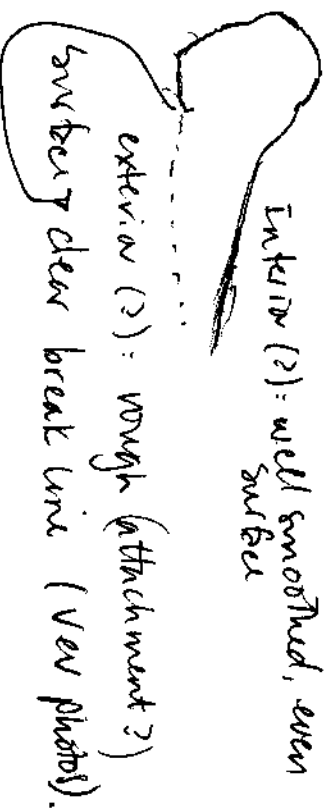 Interior (?): well smoothed, even
surface
exterior (?): rough (attachment?)
surface, clear break line (ver photos).